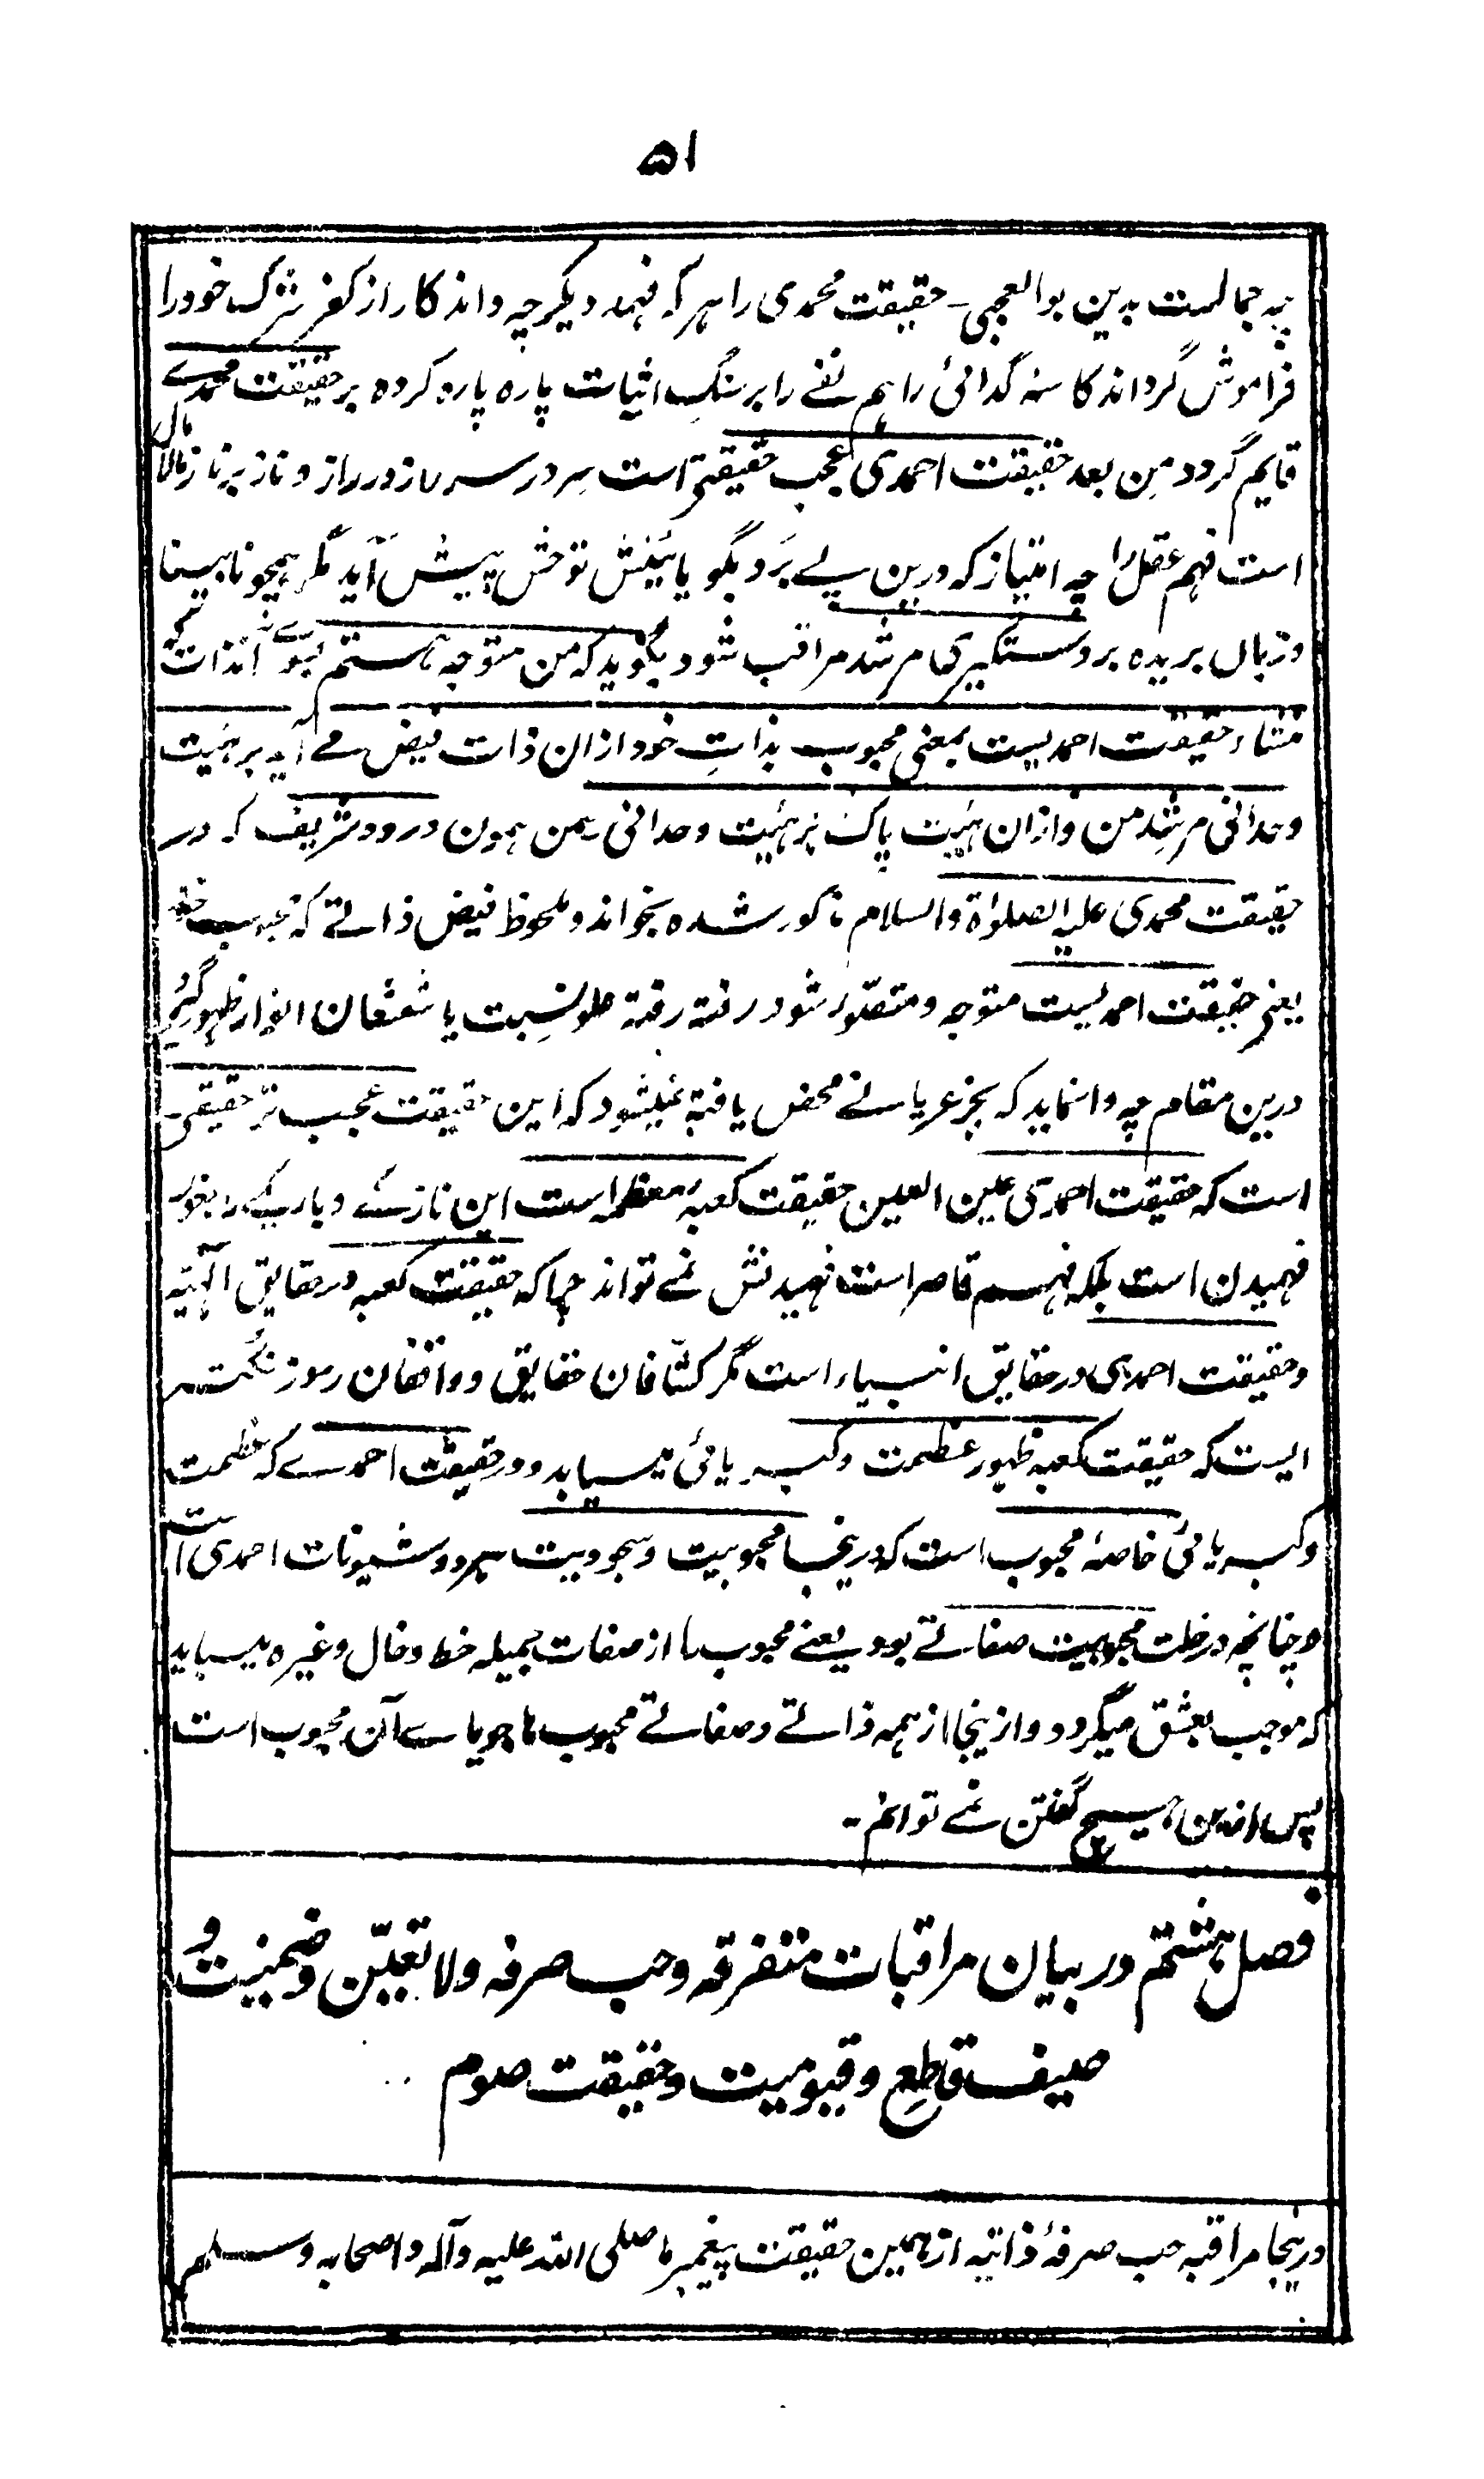 ۵۱
چہ جمالست بدین بوالعجبی ۔ حقیقت محمدی را ہر کہ فہمد دیگر چہ داند کار از کفر شرک خود را
فراموش گرداند کاسۂ گدائی را ہم نفے را بر سنگ اثبات پارہ پارہ کردہ بر حقیقت محمدے
قایم گردد من بعد حقیقت احمدی عجب حقیقتے است سر در سر راز در راز و ناز بر ناز مالا مال
است فہم عقل را چہ امتیاز کہ درین پے برد بگو یا پیش آید مگر ہمچو نابینا
و زبان بریدہ بر دستگیری مرشد مراقب شود بگوید کہ من متوجہ ہستم بسوے آنذات کہ
منشاء حقیقت احمدیست بمعنی محبوب بذاتِ خود ازان ذات فیض مے آید بر ہئیت
وحدانی مرشد من و ازان ہئیت پاک بر ہئیت وحدانی من ہمون درود شریف کہ در
حقیقت محمدی علیہ الصلوٰۃ والسلام مذکور شدہ بخواند و ملحوظ فیض ذاتے کہ محبوب
یعنی حقیقت احمدیست متوجہ و متصوّر شود رفتہ رفتہ نسبت با شعشعان انوار ظہور گیرد
درین مقام چہ وا نماید کہ بجز عریانے محض یافتہ نمیشود کہ این حقیقت عجب تر حقیقی
است کہ حقیقت احمدی عین العین حقیقت کعبہ معظمہ است این و باریکے را بغور
فہمیدن است بلکہ فہم قاصر است فہمیدنش نمے تواند چرا کہ حقیقت کعبہ در حقایق الٰہیہ
و حقیقت احمدی در حقایق انبیاء است مگر کشّافان حقایق و واقفان رموز نکتہ
ایست کہ حقیقت کعبہ ظہور عظمت و کبریائی میباید و در حقیقت احمدے کہ عظمت
و کبریائی خاصۂ محبوب است کہ درینجا محبوبیت و مسجودیت ہر دو شیونات احمدی است
و چنانچہ در خلت محبوبیت صفاتے بود یعنے محبوب را از صفات جمیلہ خط و خال و غیرہ میباید
کہ موجب بعشق میگردد و از ینجا از ہمہ ذاتے و صفاتے محبوب ما جویاے آن محبوب است
پس ازین ہیچ گفتن نمے توانم ۔
فصل ہشتم در بیان مراقبات متفرقہ و حب صرفہ و لا تعیّن و ضمنیت و
صیف قاطع و قیومیت و حقیقت صوم
درینجا مراقبہ حب صرفۂ ذاتیہ از ہمین حقیقت پیغمبر ما صلی اللہ علیہ وآلہ و اصحابہ وسلم